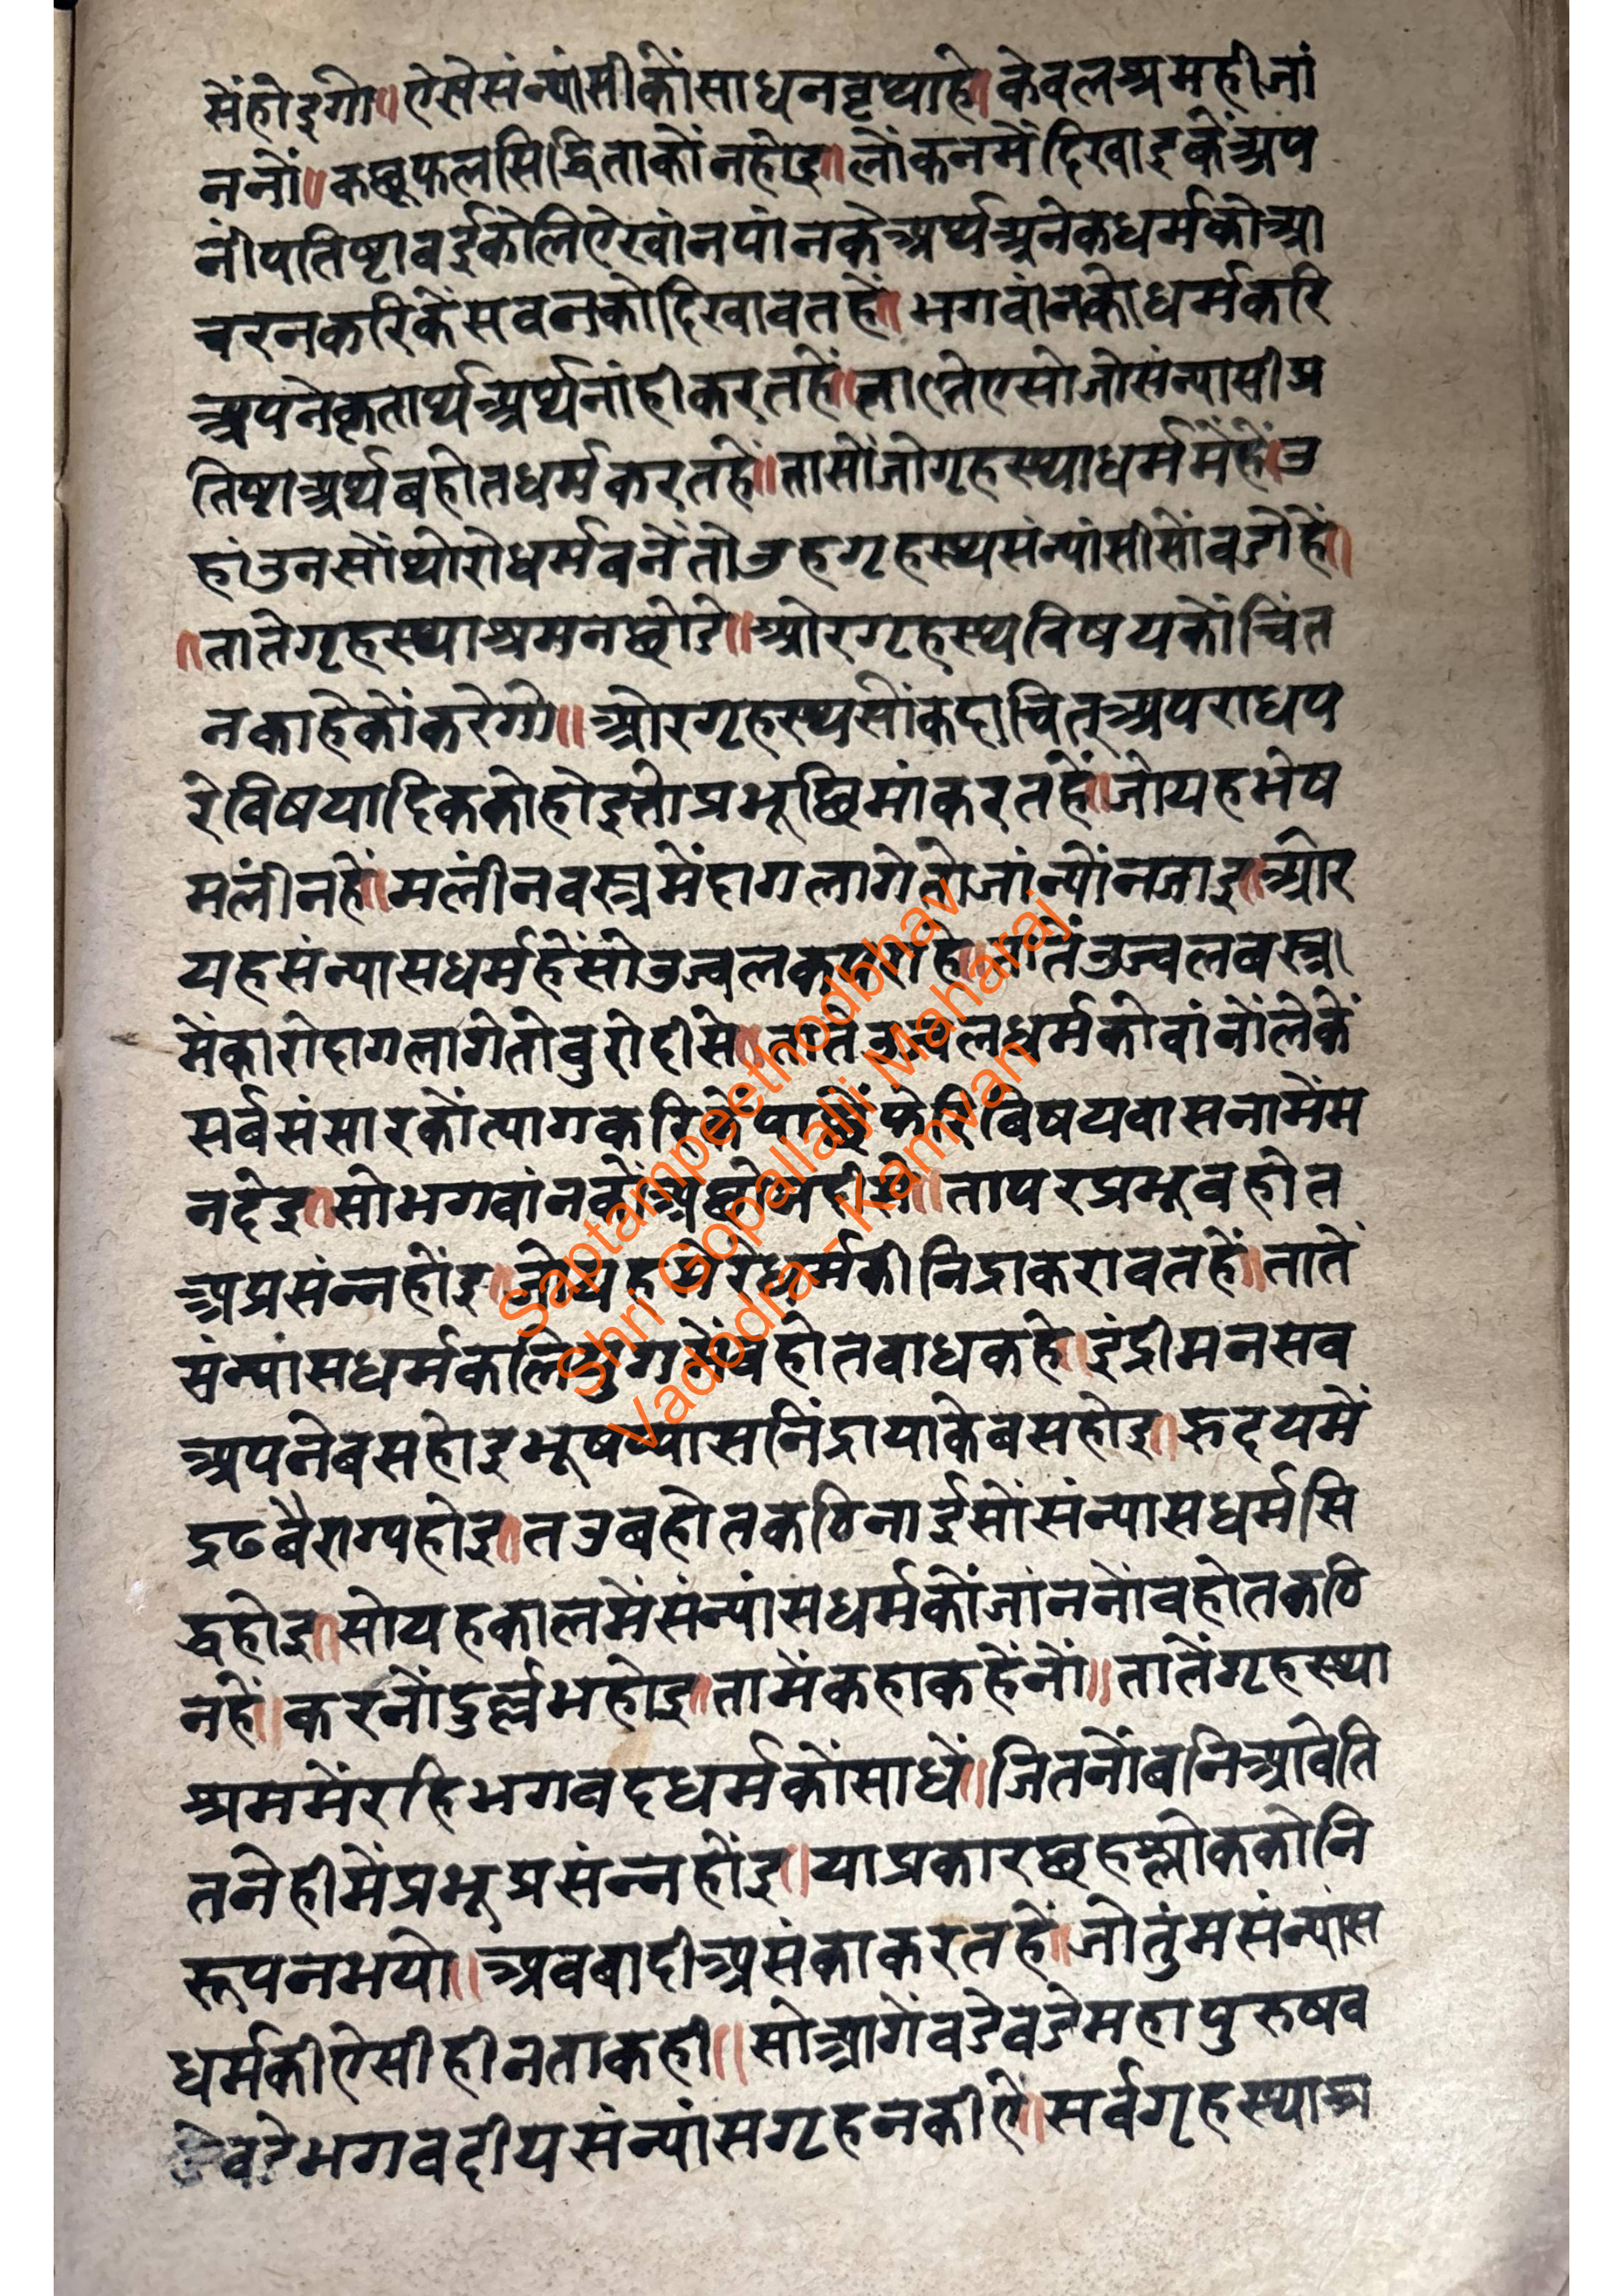 सेंहोइगो॥ऐसेसंन्यांसीकोंसाधनवृथ्याहे॥केवलश्रमहीजां
ननों॥कछूफलसिद्धिताकोंनहोइ॥लोंकनमेंदिखाइकेंअप
नीपतिष्टावईकेलिऐखांनपांनकेअर्थ्यअनेकधर्मकोआ
चरनकरिकेंसवनकोदिखावतहें॥भगवांनकोधर्मकरि
अपनेकृतार्थ्यअर्थ्यनांहीकरतहें॥तातेएसोजोसंन्यासीप्र
तिष्टाअर्थबहोतधर्मकरतहे॥तासोंजोगृहस्थ्याधर्ममेंहें॥उ
हांउनसोंथोरोधर्मबनेंतोउहगृहस्थ्यसंन्यांसीसोंवडोहें॥
॥तातेगृहस्थ्याश्रमनछोडे॥ओरगृहस्थ्यविषयकोंचिंत
नकाहेकोंकरेगो॥ओरगृहस्थ्यसोंकदाचित्अपराधप
रेविषयादिककोहोइतोप्रभूछिमांकरतहें॥जोयहभेष
मलीनहें॥मलीनवस्त्रमेंदागलागेतोजांन्योंनजाइ॥ओर
यहसंन्यासधर्महेंसोउज्वलकहतहे॥तातेंउज्वलबस्त्र।
मेंकारोदागलागेतोवुरोदीसे॥तातेउज्वलधर्मकोवांनोंलेकें
सर्वसंसारकोंत्यागकरिकेंपाछेंफेरिविषयवासनामेंम
नदेइ॥सोभगवांनकों॥तापरप्रभूवहोत
अप्रसंन्नहोंइ॥जोयहमेरेधर्मकीनिद्राकरावतहें॥तातें
संन्यांसधर्मकलियुगमेंबहोतवाधकहे॥इंद्रीमनसव
अपनेबसहोइभूषप्यासनिंद्रायाकेबसहोइ॥रुदयमें
द्रढबैराग्यहोइ॥तउबहोतकठिनाईसोंसंन्यासधर्मसि
द्धहोइ॥सोयहकालमेंसंन्यांसधर्मकोंजांननोंवहोतकठि
नहें॥करनोंदुर्ल्लभहोइ॥तामेंकहाकहेंनों॥तातेंगृहस्थ्या
श्रममेंरहिभगवदधर्मकोंसाधें॥जितनोंबनिआवेति
तनेहीमेंप्रभूप्रसंन्नहोंइ॥याप्रकारछहश्लोककोनि
रूपनभयो॥अवबादीअसंकाकरतहें॥जोतुंमसंन्यांस
धर्मकीऐसीहीनताकही॥सोआगेंवडेवडेमहापुरुषव
डेवडेभगवदीयसंन्यांसगृहनकीऐ॥सर्वगृहस्थ्याश्र
Saptampeethodbhav
Shri Gopallalji Maharaj
Vadodra - Kamvan